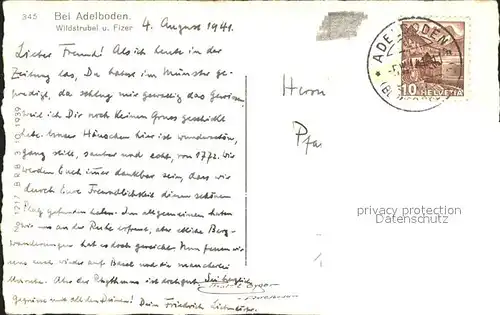 345 Bei Adelboden.
Wildstrubel u. Fizer
4. August 1941.
Lieber Freund! Als ich heute in der
Zeitung las, Du habest im Münster ge-
predigt, da schlug mir gewaltig das Gewissen,
weil ich Dir noch keinen Gruss geschickt
habe. Unser Häuschen hier ist wunderschön,
ganz still, sauber und echt, von 1772. Wir
werden Euch immer dankbar sein, dass wir
durch Eure Freundlichkeit diesen schönen
Platz gefunden haben. Im allgemeinen haben
wir uns an der Ruhe erfreut, aber etliche Berg-
wanderungen hat es doch gereicht. Nun freuen wir
uns auch wieder auf Basel und die mancherlei
Also der Rhythmus ist doch gut. Sei herzlich
gegrüsst und all den Deinen! Dein Friedrich
Herrn
Pfa
ADELBODEN
10 HELVETIA
7217 BRB 3.10.1939
privacy protection
AnsichtskartenCenter